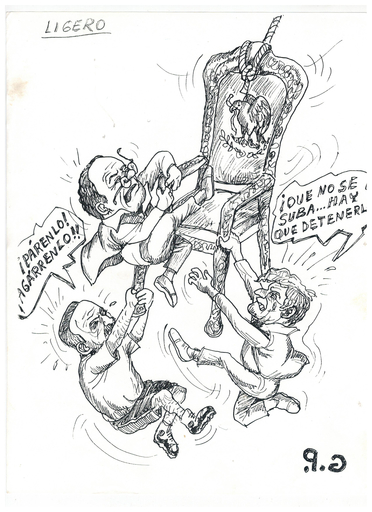 LIGERO
¡PÁRENLO!
AGÁRRENLO!!
¡QUE NO SE
SUBA...HAY
QUE DETENERL
G.P.